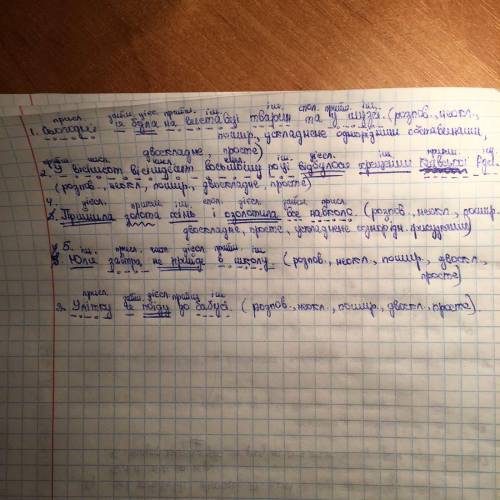 присл. займ. дієсл. прийм. ім. ім. спол. прийм. ім.
1. Сьогодні я була на виставці тварин та у музеї. (розпов., неокл.,
пошир., ускладнене однорідними обставинами,
двоскладне, просте)
дієсл. ім. прийм. ім.
У вісімсот вісімдесят восьмому році відбулося хрещення Русі.
(розпов., неокл., пошир., двоскладне, просте)
4. дієсл. прикм. ім. спол. дієсл. займ. присл.
Прийшла золота осінь і озолотила все навколо. (розпов., неокл., пошир.,
двоскладне, просте, ускладнене однорідн. присудками)
5. ім. присл. част. дієсл. прийм. ім.
Юля завтра не прийде в школу. (розпов., неокл., пошир., двоскл.,
просте)
присл. займ. дієсл. прийм. ім.
2. Улітку я поїду до бабусі. (розпов., неокл., пошир., двоскл., просте).